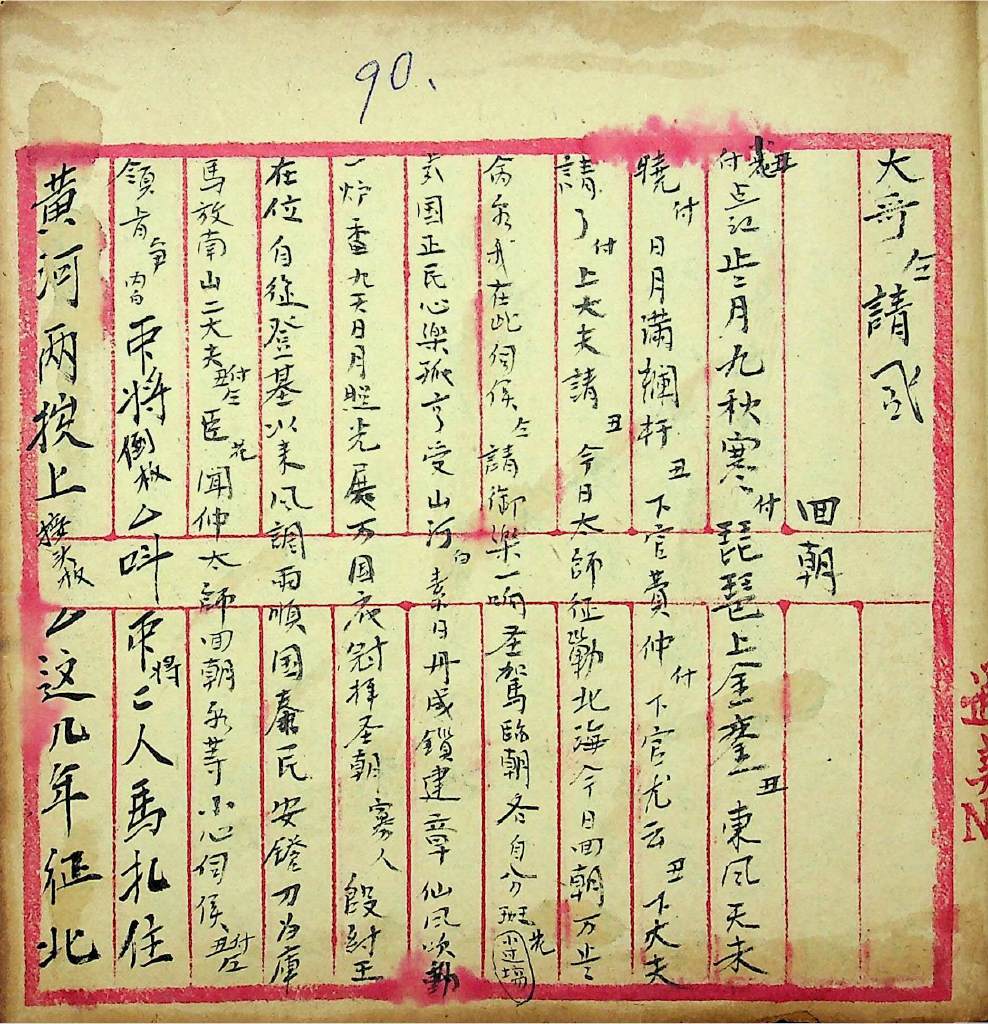 90.
大哥 仝 請 弎
回朝
丑 付 点江 止二月九秋寒 付 琵琶上金 丑 東風天未
曉 付 日月滿欄杆 丑 下官費仲 付 下官尤云 丑 下大夫
請了 付 上大夫請 丑 今日太師征勦北海今日回朝万歲
在此伺侯 仝 請御樂一响圣駕臨朝各自分班 花 小过場
国正民心樂孤亨受山河 白 素日丹成鎖建章仙风吹動
一炉香九天日月照光展万国衣冠拜圣朝寡人殷紂王
在位自從登基以来风調雨順国泰民安鎗刀为庫
馬放南山二大夫 丑付仝 臣 花 聞仲太師回朝等小心伺侯 丑付仝
領旨 內白 倒板 叫 二人馬扎住
黃河两 上 这几年征北